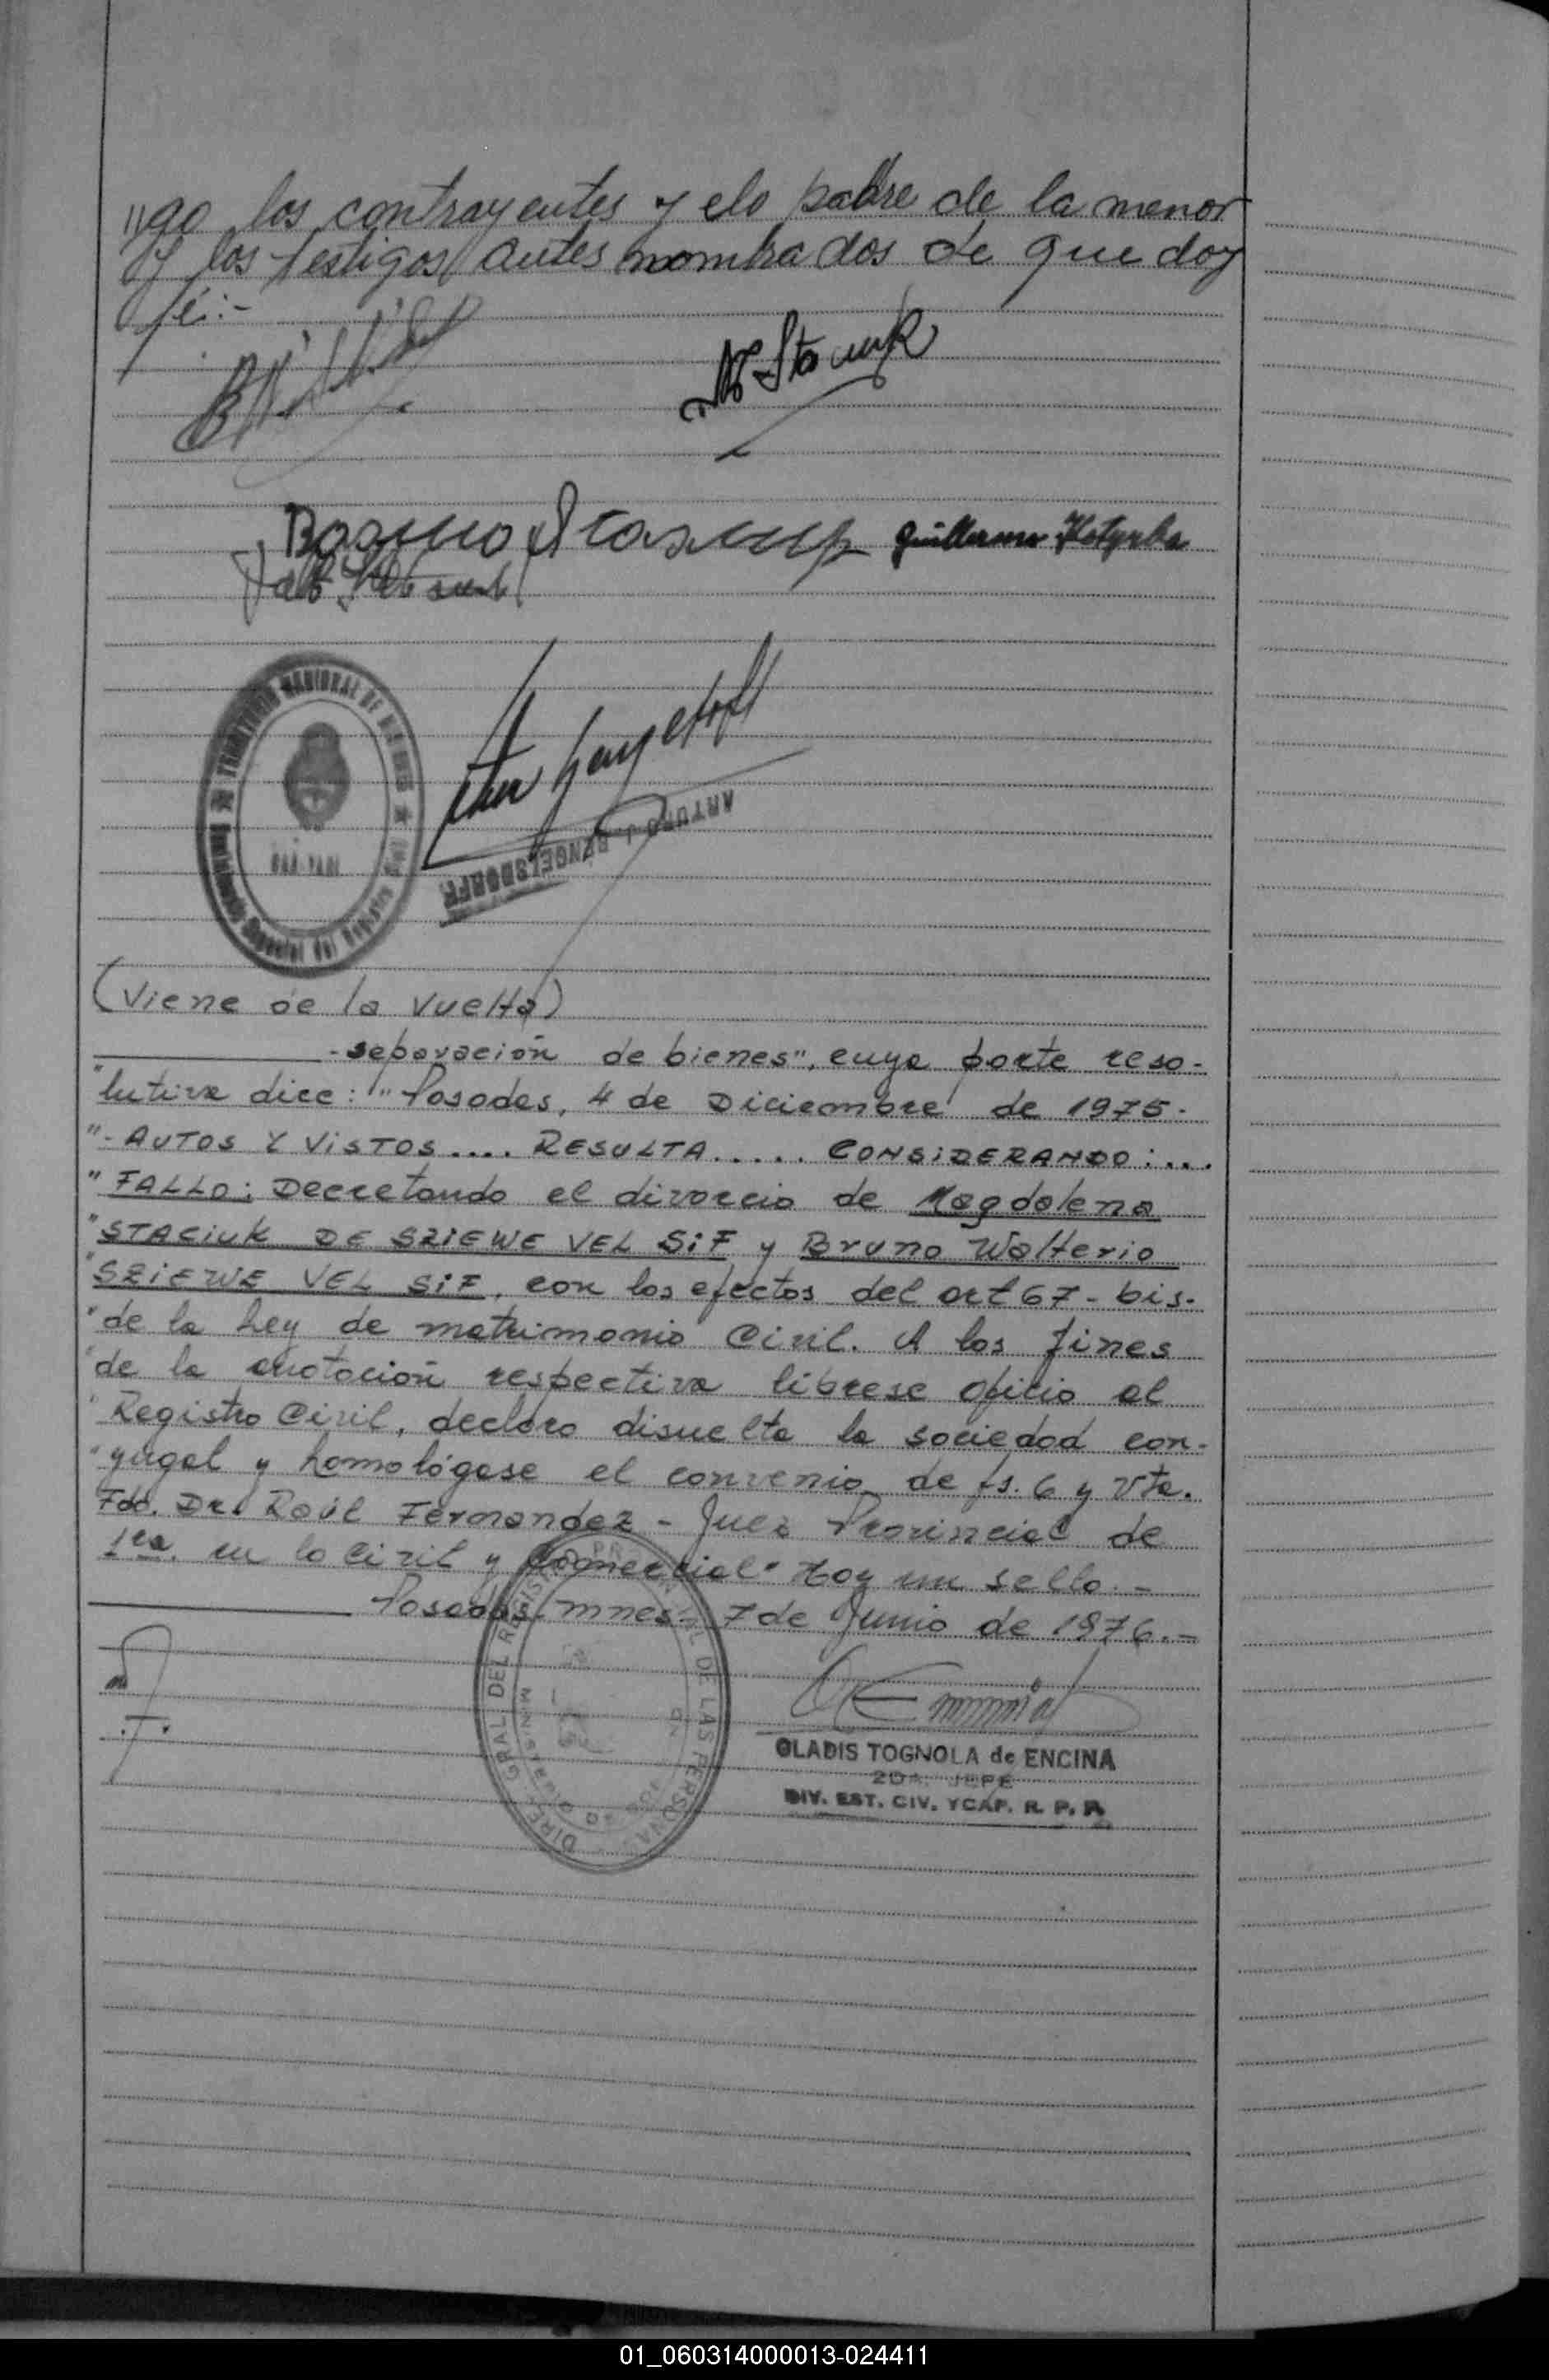 "go los contrayentes y elo padre de la menor
y los testigos antes nombrados de que doy
fé:-
M Staciuk
Guillermo
TERRITORIO NACIONAL DE MISIONES
ARTURO J. BENGELSDORFF
(Viene de la Vuelta)
-separación de bienes", cuya parte reso-
"lutiva dice: "Posadas, 4 de Diciembre de 1975-
"- AUTOS Y VISTOS.... RESULTA..... CONSIDERANDO:...
"FALLO: Decretando el divorcio de Magdalena
"STACIUK DE SZIEWE VEL SIF y Bruno Walterio
"SZIEWE VEL SIF, con los efectos del art 67- bis-
"de la Ley de matrimonio Civil. A los fines
"de la anotación respectiva líbrese oficio al
"Registro Civil, declaro disuelta la sociedad con-
"yugal y homológase el convenio de fs. 6 y Vta.
Fdo. Dr. Raúl Fernandez - Juez Provincial de
1ra. en lo Civil y Comercial" Hay un sello.-
Posadas, Mnes- 7 de Junio de 1976.-
GLADIS TOGNOLA de ENCINA
2DA. JEFE
DIV. EST. CIV. YCAP. R. P. P.
01_060314000013-024411